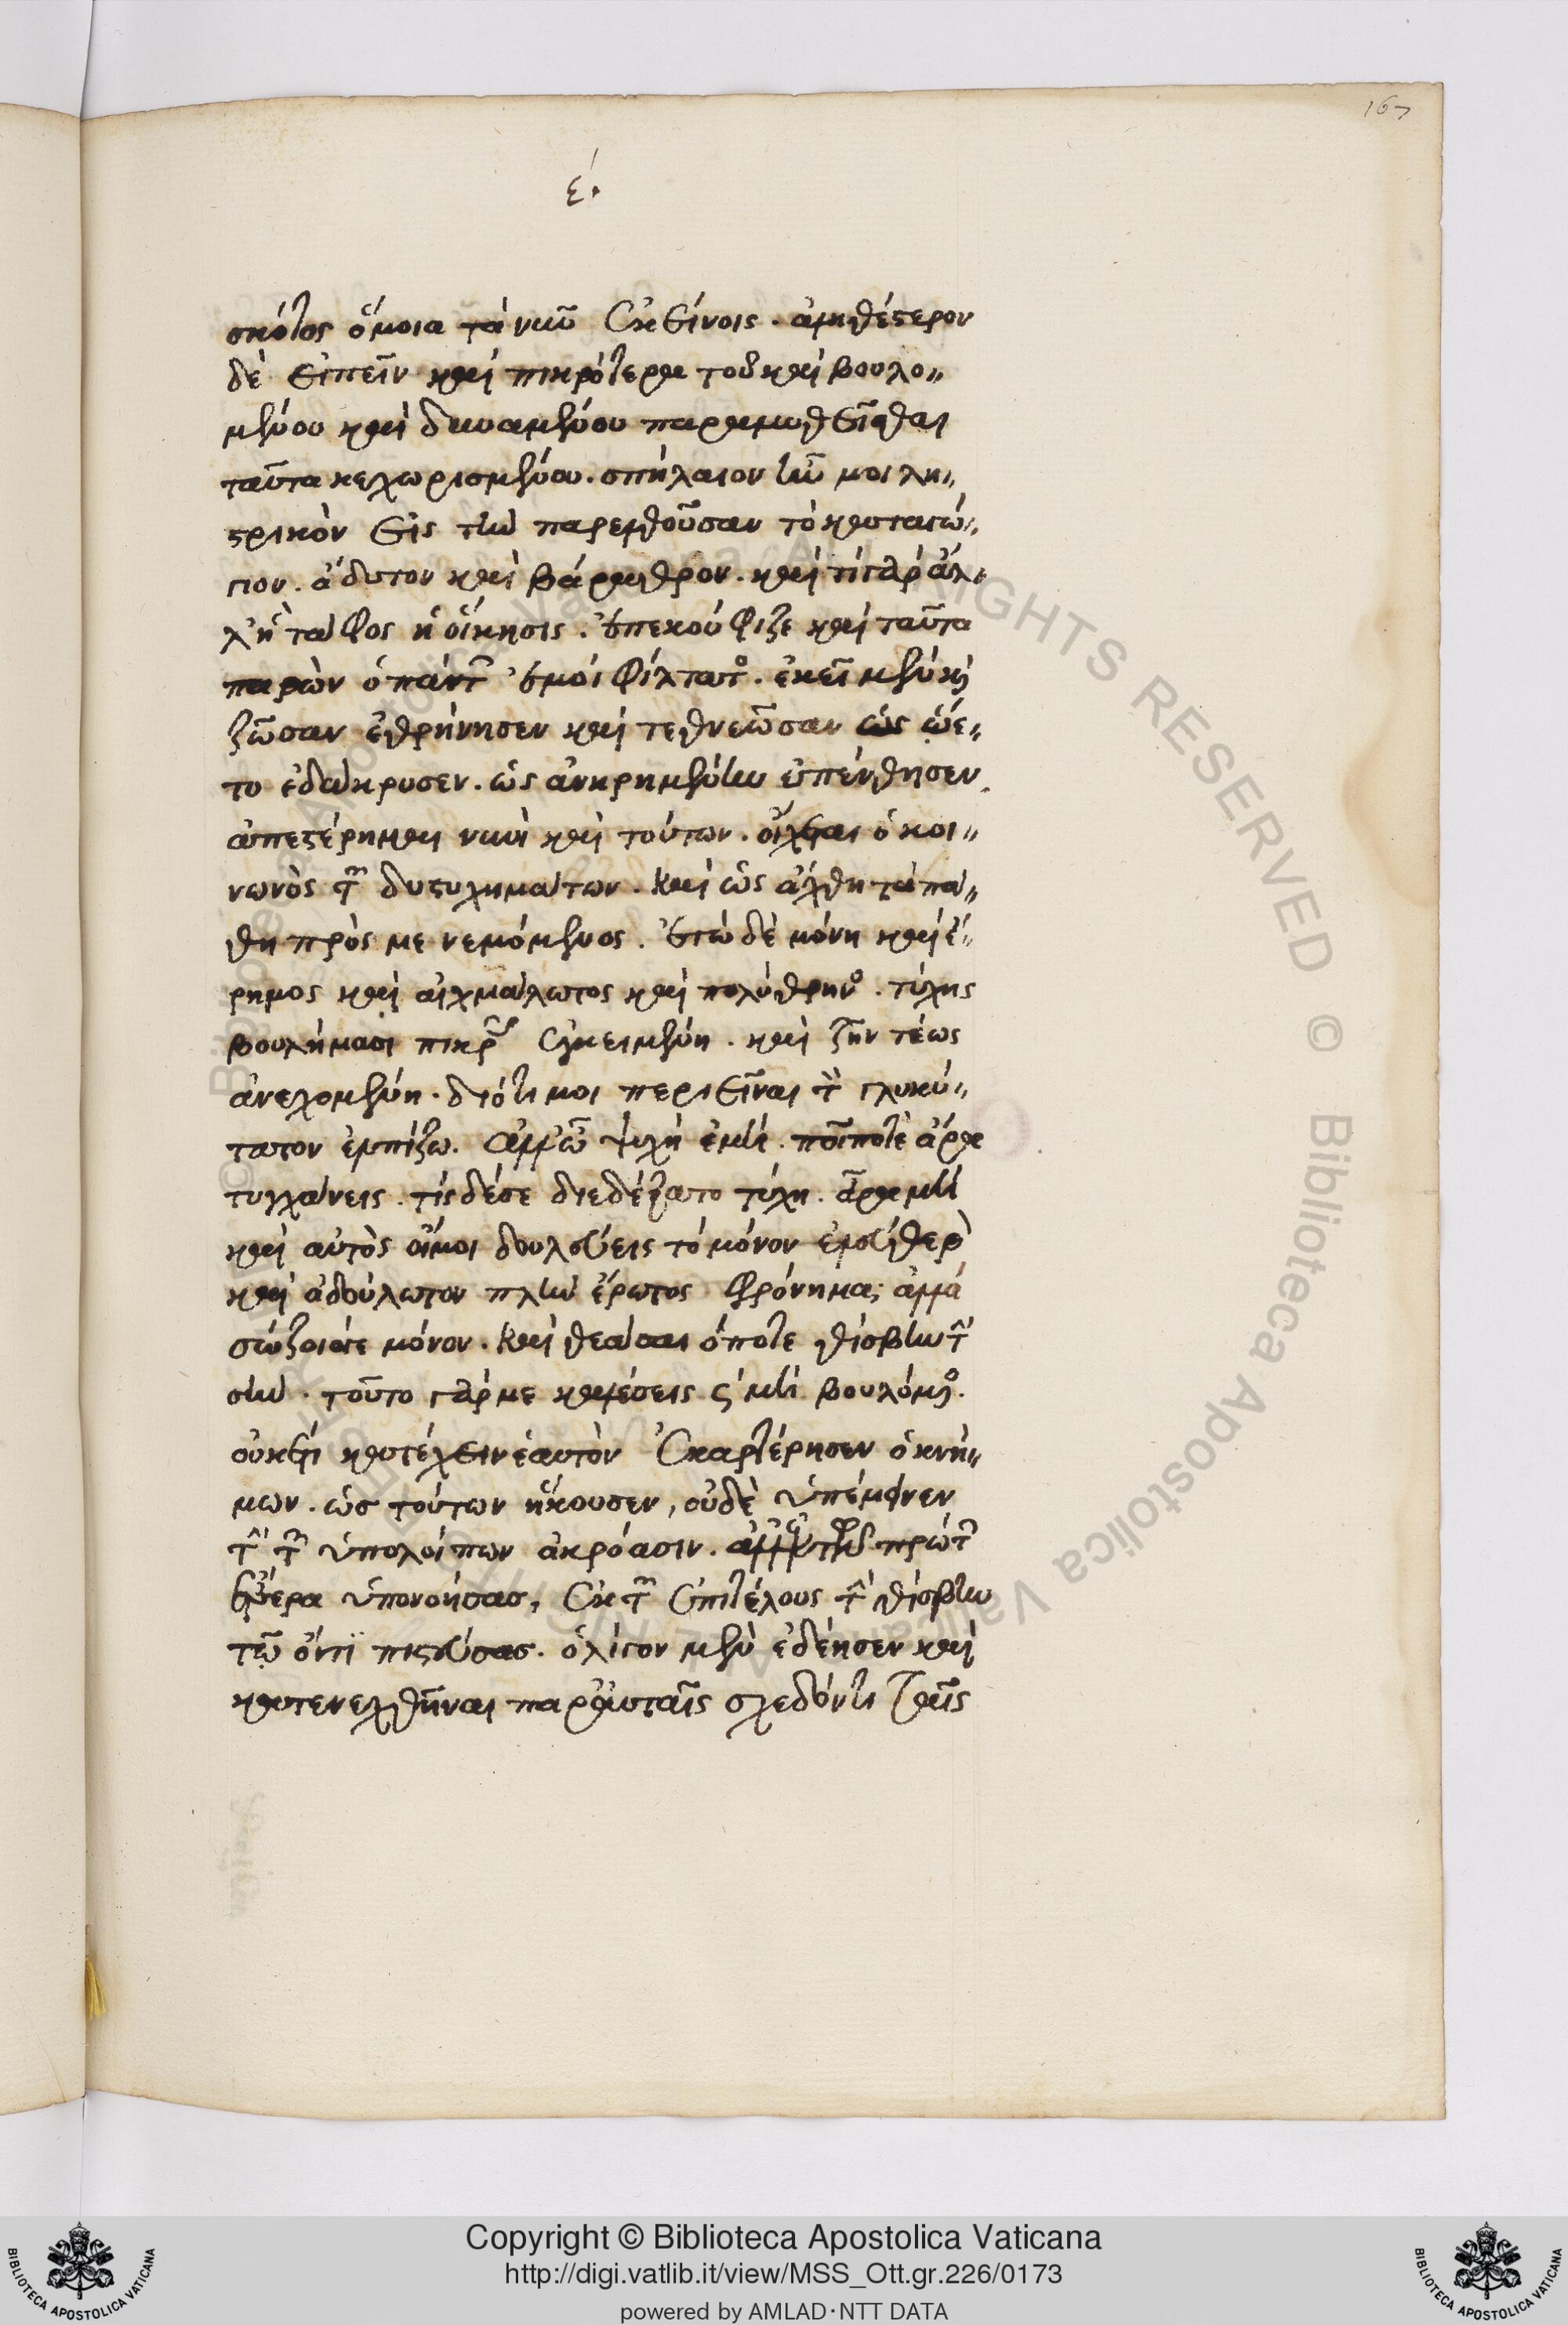 167
ε΄.
σκότος ὅμοια τὰ νῦν ἐκείνοις. ἀληθέστερον
δὲ εἰπεῖν καὶ πικρότερα τοῦ καὶ βουλο„
μένου καὶ δυναμένου παραμυθεῖσθαι
ταῦτα κεχωρισμένου. σπήλαιον ἦν μοι λη„
στρικὸν εἰς τὴν παρελθοῦσαν τὸ καταγώ„
γιον. άδυτον καὶ βάραθρον. καὶ τί γὰρ ἄλ„
λ᾽ ἢ τάφος ἡ οἴκησις. ἐπεκούφιζε καὶ ταῦτα
παρὼν ὁ πάντ ἐμοὶ φίλτατος. ἐκεῖ μὲν καὶ
ζῶσαν ἐθρήνησεν καὶ τεθνεῶσαν ὡς ᾤε„
το ἐδάκρυσεν. ὡς ἀνῃρημένην ἐπένθησεν.
ἀπεστέρημαι νυνὶ καὶ τούτων. οἴχεται ὁ κοι„
νωνὸς τῶν δυστυχημάτων. καὶ ὡς ἄχθη τὰ πά„
θη πρός με νεμόμενος. ἐγὼ δὲ μόνη καὶ ἔ„
ρημος καὶ αἰχμάλωτος καὶ πολύθρηνος. τύχης
βουλήμασι πικρᾶς ἐγκειμένη. καὶ ζῆν τέως
ἀνεχομένη. διότι μοι περιεῖναι τὸν γλυκύ„
τατον ἐλπίζω. ἀλλ᾽ ὦ ψυχὴ ἐμὴ. ποῖ ποτὲ ἄρα
τυγχάνεις. τίς δέ σε διεδέξατο τύχη. ἆρα μὴ
καὶ αὐτὸς οἴμοι δουλεύεις τὸ μόνον ἐλεύθερον
καὶ ἀδούλωτον πλὴν ἔρωτος φρόνημα; ἀλλὰ
σώζοιό τε μόνον. καὶ θεάσαι ὁπότε θίσβην τὴν
σήν. τοῦτο γάρ με καλέσεις καὶ μὴ βουλόμενος.
οὐκ ἔτι κατέχειν ἑαυτὸν ἐκαρτέρησεν ὁ κνή„
μων. ὡς τούτων ἤκουσεν, οὐδὲ ὑπέμεινεν
τὴν τῶν ὑπολοίπων ἀκρόασιν. ἀλλ᾽ ἐκ τῆς πρώτης
ἕτερα ὑπονοήσας, ἐκ τῶν ἐπιτέλους τὴν θίσβην
τῷ ὄντι πιστεύσας. ὀλίγον μὲν ἐδέησεν καὶ
κατενεχθῆναι παρ᾽ αὐταῖς σχεδόν τι ταῖς
Copyright © Biblioteca Apostolica Vaticana
http://digi.vatlib.it/view/MSS_Ott.gr.226/0173
powered by AMLAD·NTT DATA